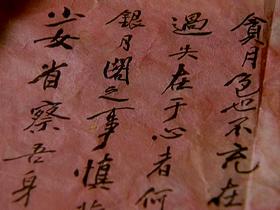 貪月色也不充在
過失在于心者何
銀月閣之事慎
妾省察吾身